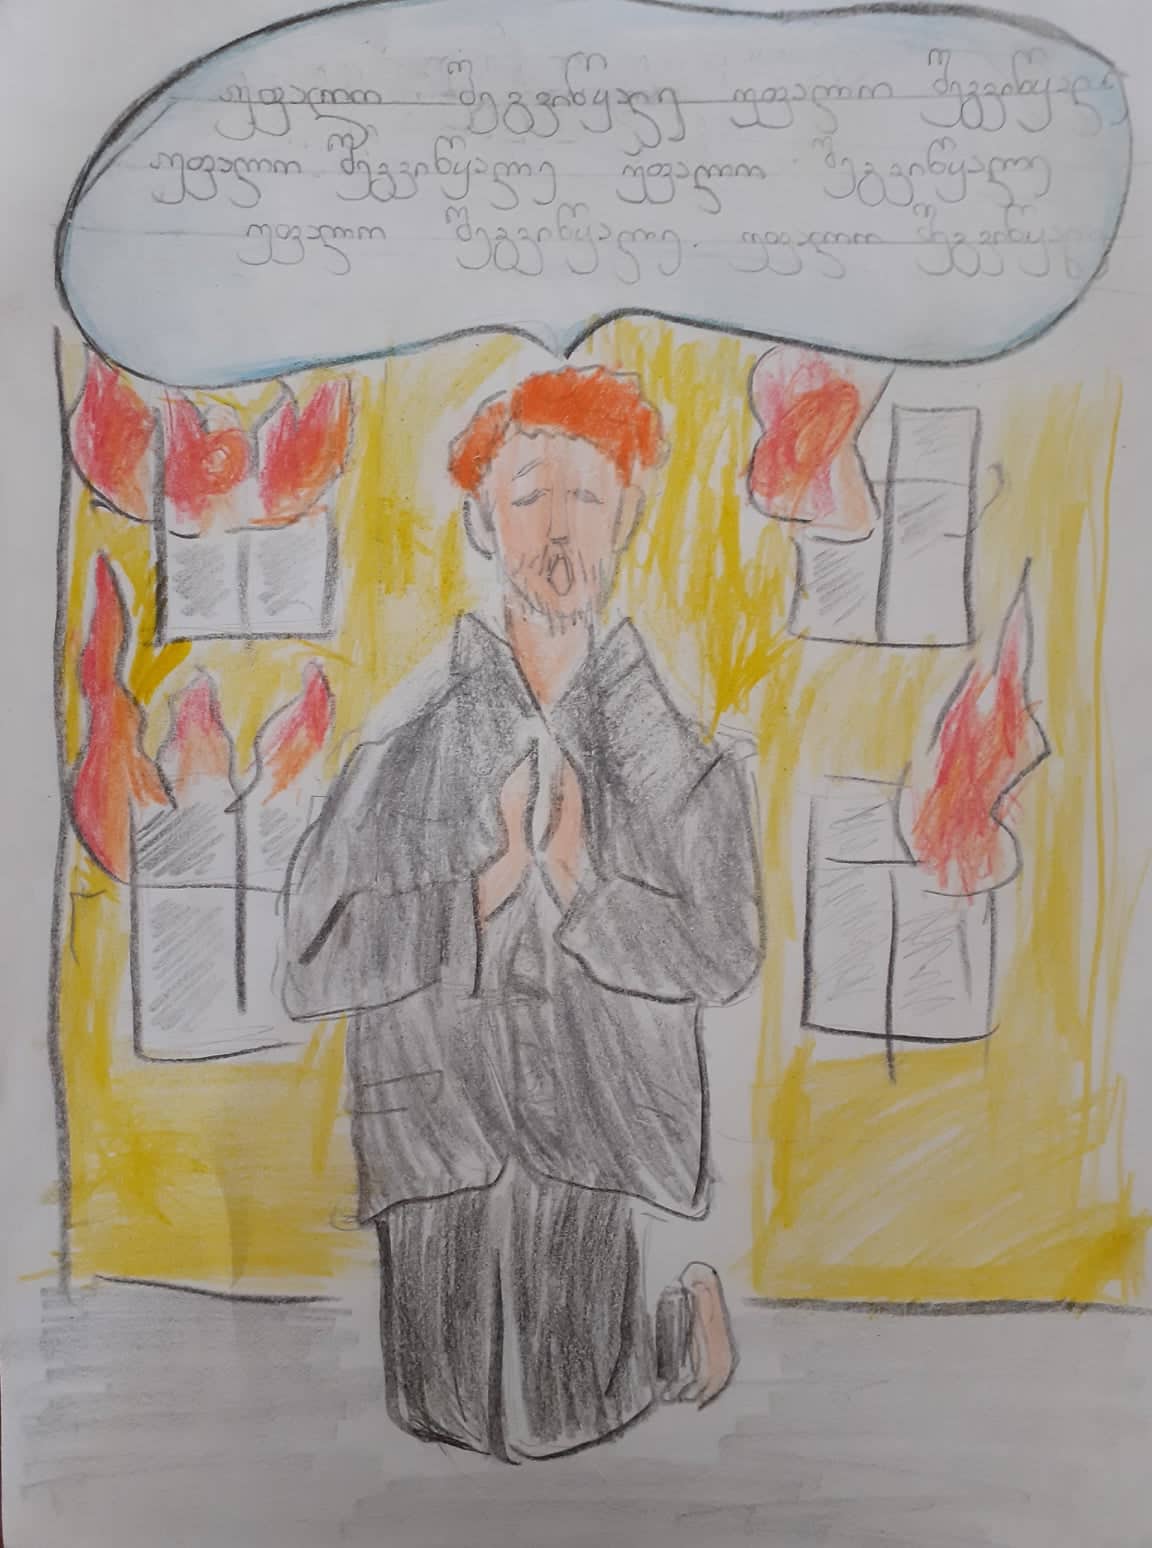 უფალო შეგვიწყალე უფალო შეგვიწყალე
უფალო შეგვიწყალე უფალო შეგვიწყალე
უფალო შეგვიწყალე. უფალო შეგვიწყალე